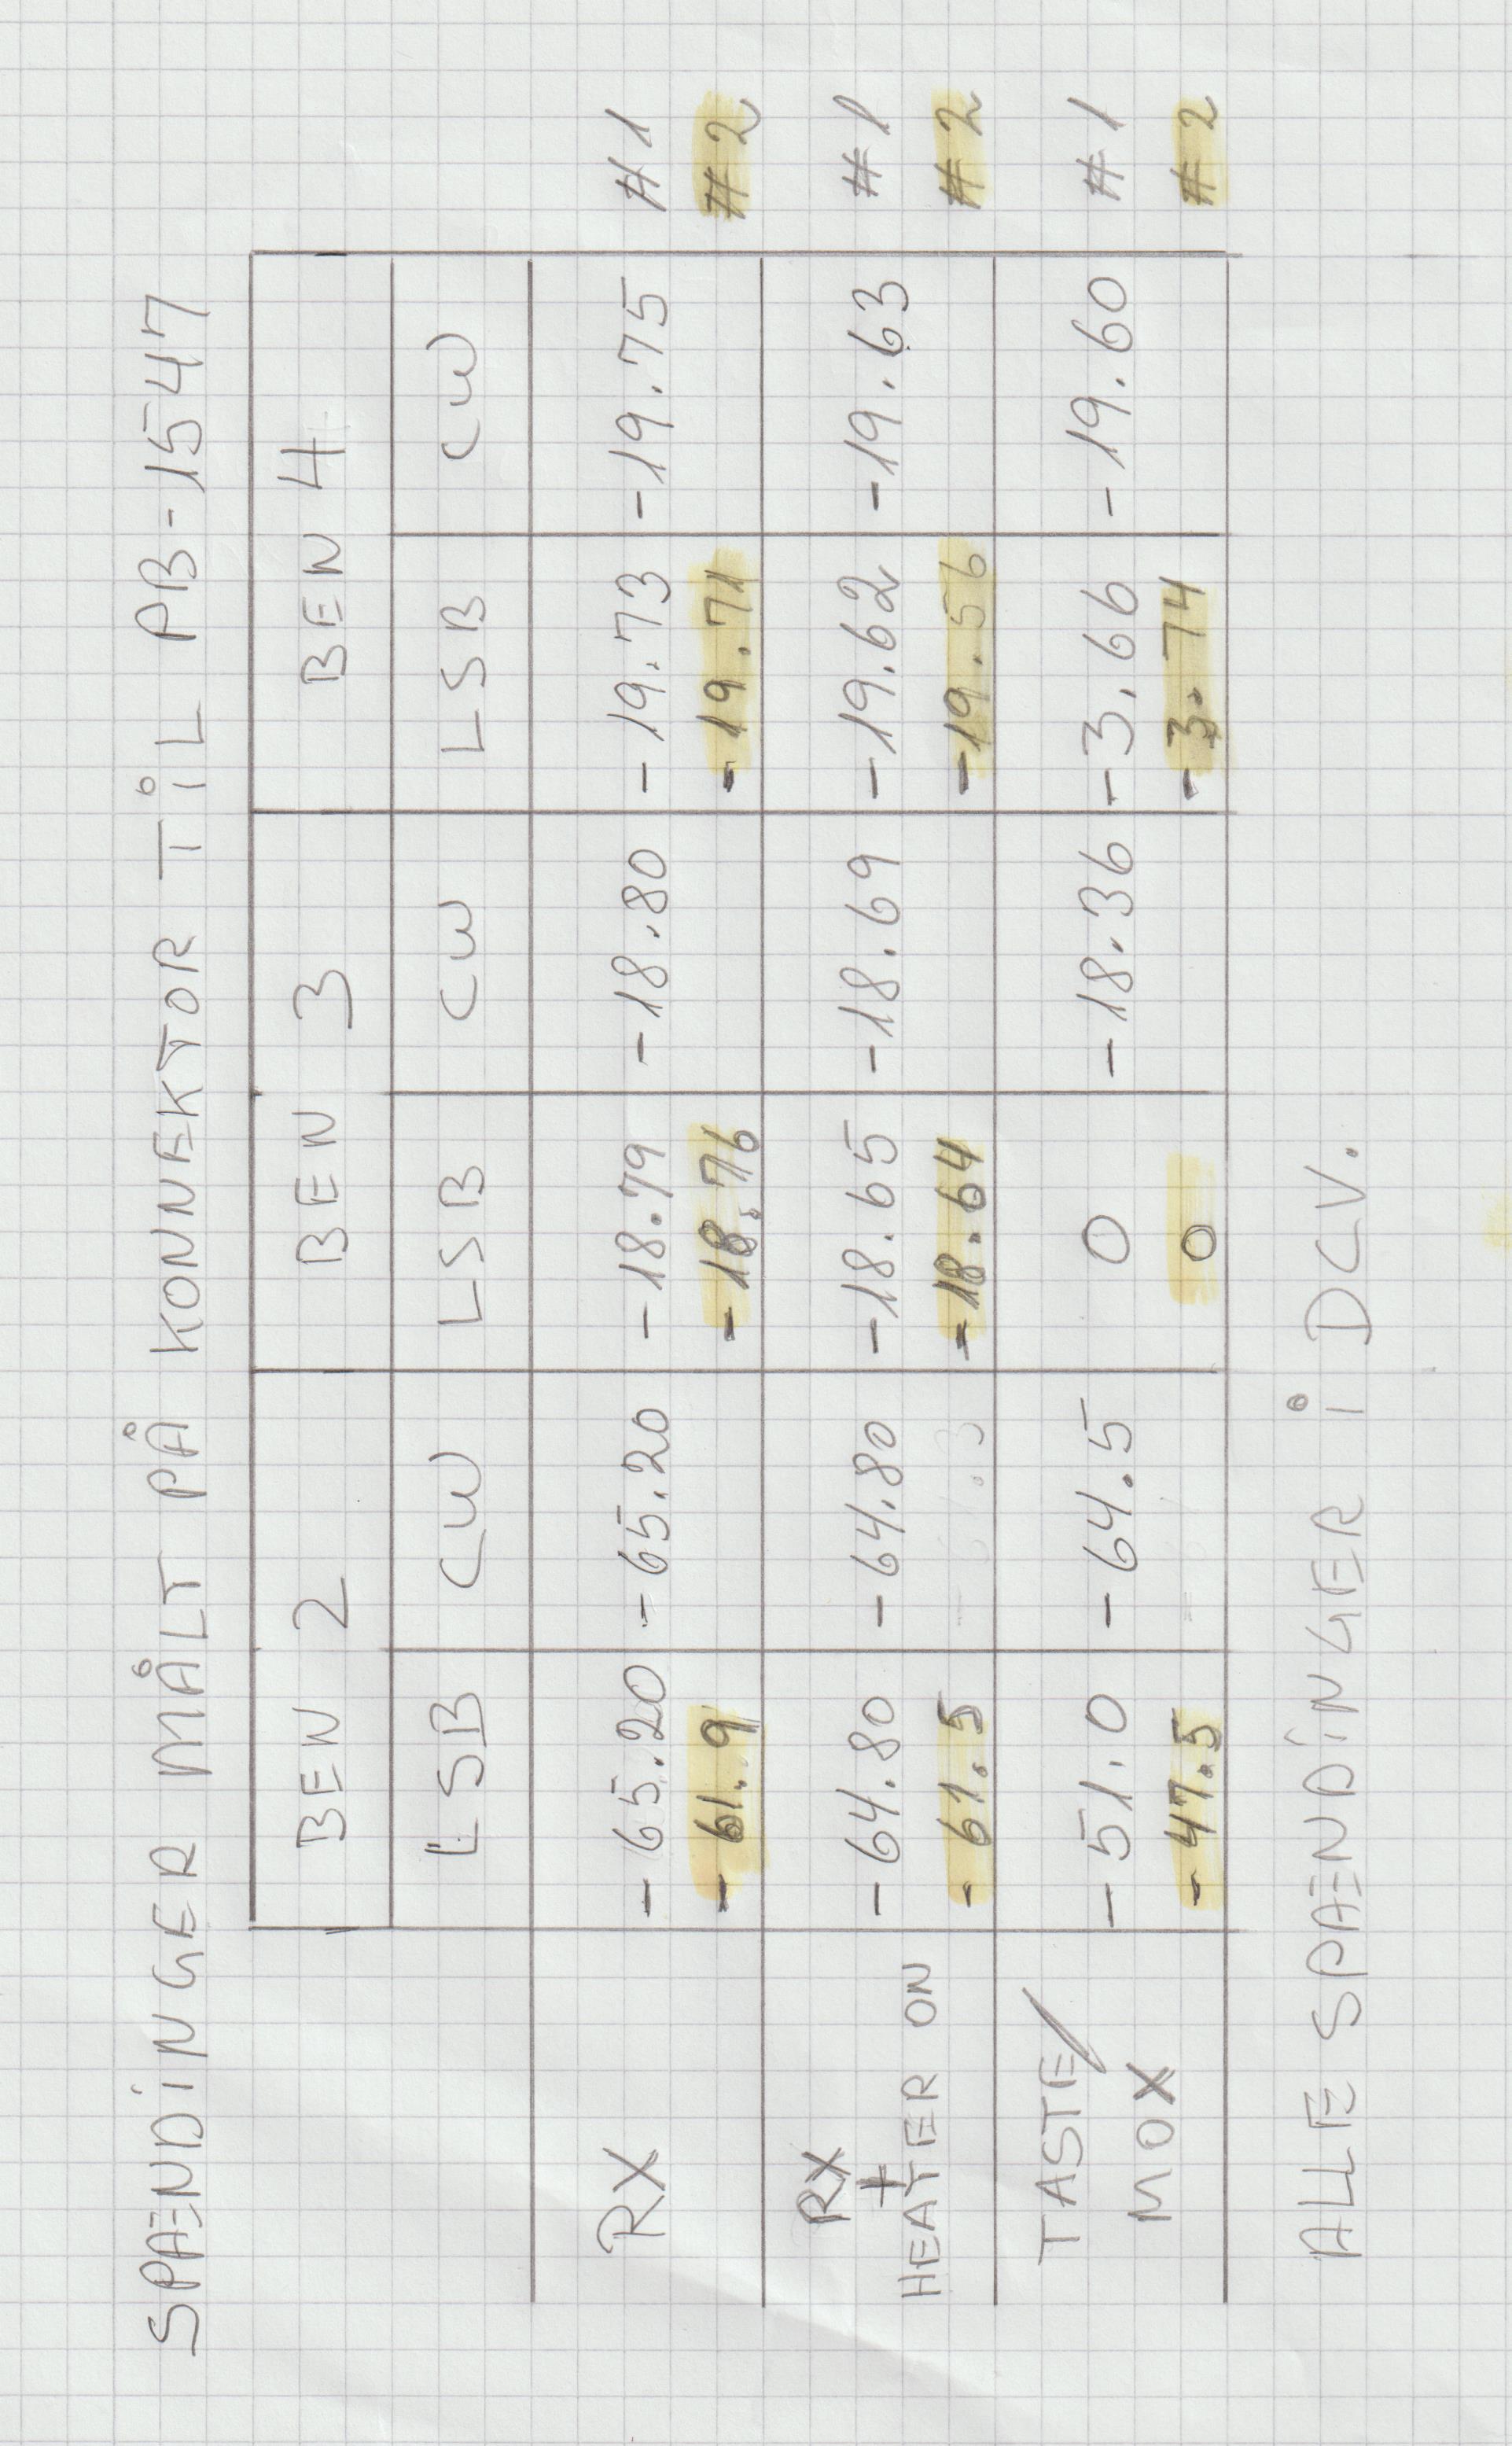 SPÆNDINGER MÅLT PÅ KONNEKTOR TIL PB-1547
BEN 2 BEN 3 BEN 4
LSB CW LSB CW LSB CW
RX -65.20 -65.20 -18.79 -18.80 -19.73 -19.75 #1
-61.9 -18.76 -19.71 #2
RX + HEATER ON -64.80 -64.80 -18.65 -18.69 -19.62 -19.63 #1
-61.5 -18.64 -19.56 #2
TASTE/ MOX -51.0 -64.5 0 -18.36 -3.66 -19.60 #1
-47.5 0 -3.74 #2
ALLE SPÆNDINGER I DCV.